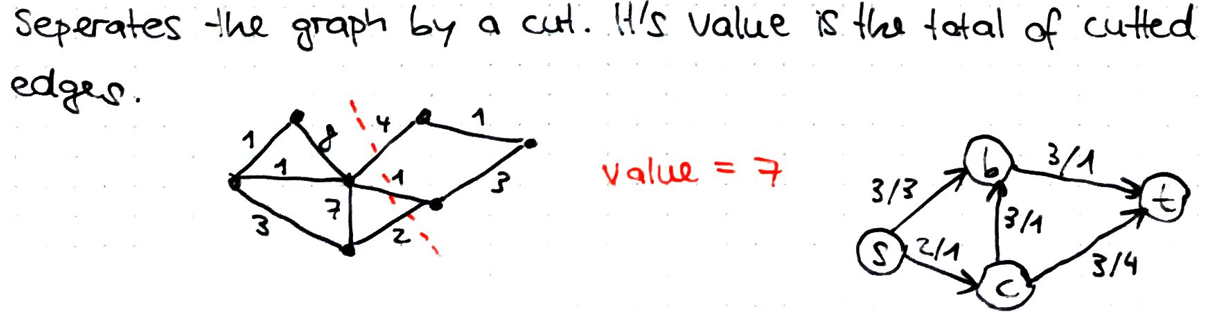 Seperates the graph by a cut. It's value is the total of cutted
edges.
1 8 4 1
1 1 3
3 7 2
value = 7
b 3/1 t
3/3 3/1
s 2/1 c 3/4